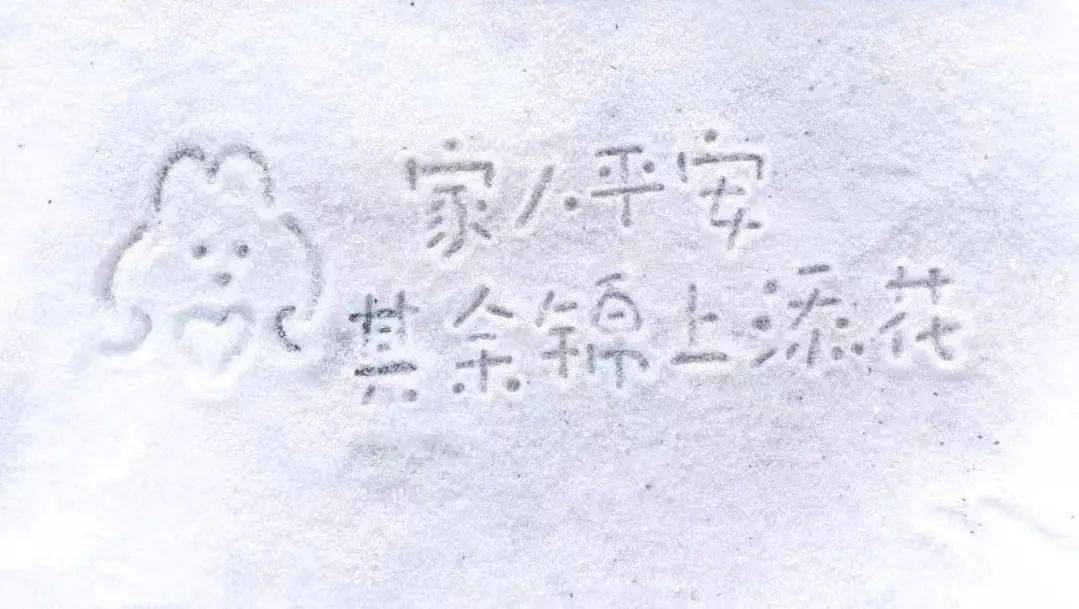 家人平安
其余锦上添花